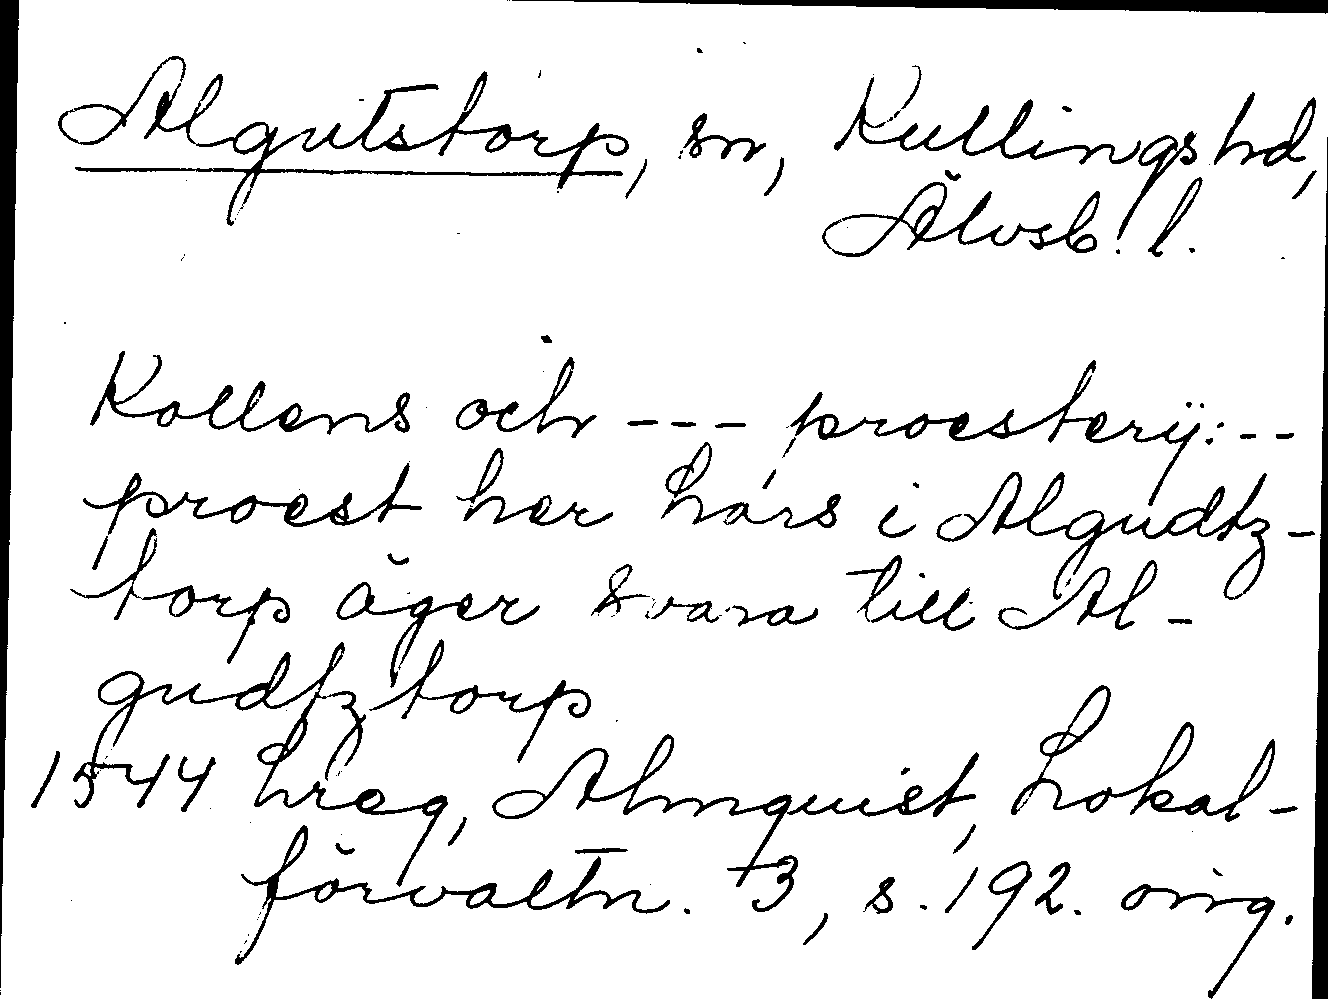 Algutstorp, sn, Kullings hd,
Älvsb. l.
Kollens och --- proestery: --
proest her Lars i Algudtz-
torp äger svara till Al-
gudtztorp
1544 Lreg, Almquist, Lokal-
förvaltn. 3, s. 192. orig.